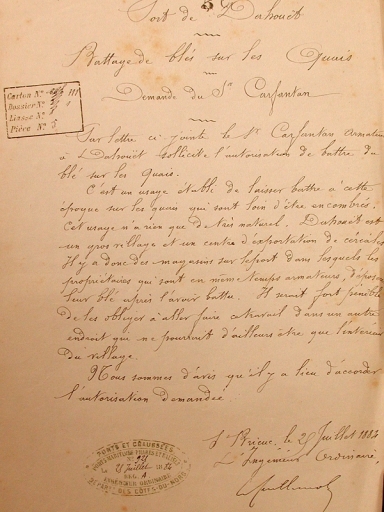 Port de Dahouët
Battage de blés sur les Quais
Demande du Sr Carfantan
Carton No III
Dossier No
Liasse No
Pièce No 5
Sur lettre ci jointe le Sr Carfantan Armateur
à Dahouët sollicite l'autorisation de battre du
blé sur les Quais.
C'est un usage établi de laisser battre à cette
époque sur les quais qui sont loin d'être encombrés.
Cet usage n'a rien que de très naturel. Dahouët est
un gros village et un centre d'exportation de céréales
Il y a donc des magasins sur le port dans lesquels les
propriétaires qui sont en même temps armateurs déposent
leur blé après l'avoir battu. Il serait fort pénible
de les obliger à aller faire ce travail dans un autre
endroit que ne pourrait d'ailleurs être que l'intérieur
du village.
Nous sommes d'avis qu'il y a lieu d'accorder
l'autorisation demandée.
St Brieuc, le 25 Juillet 1884
L'Ingénieur Ordinaire,
PONTS ET CHAUSSÉES
No 921
25 Juillet 84
INGÉNIEUR ORDINAIRE
DÉPART. DES CÔTES-DU-NORD